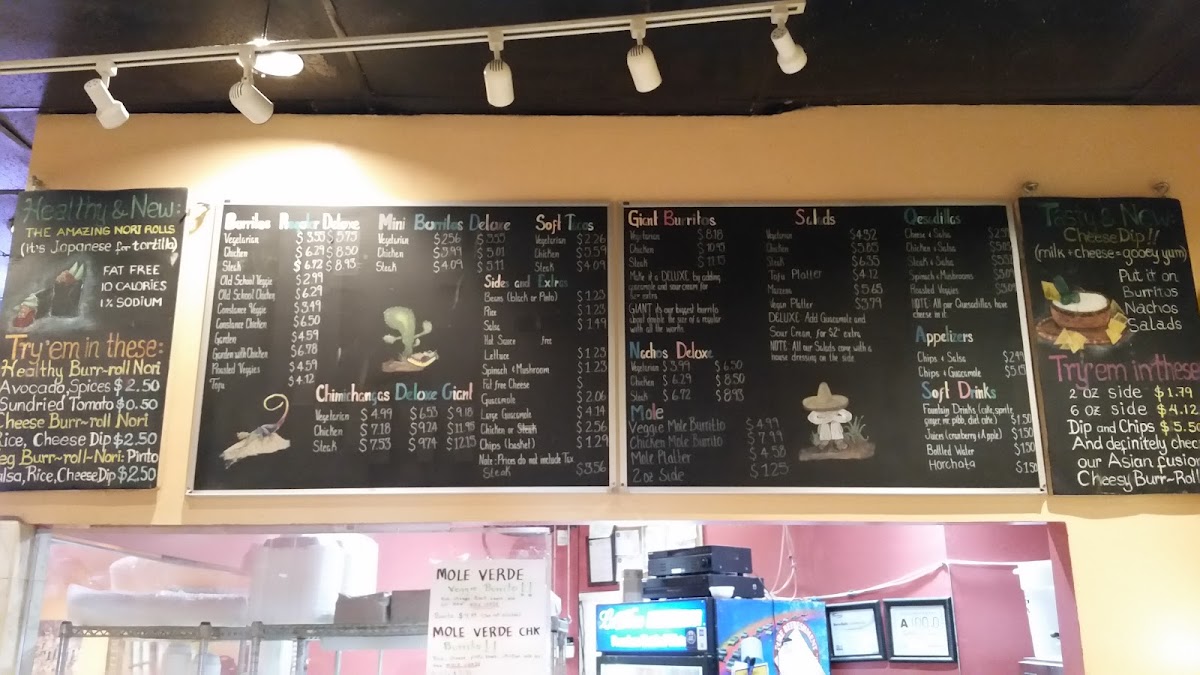 Healthy & New:
THE AMAZING NORI ROLLS
(it's Japanese for tortilla)
FAT FREE
10 CALORIES
1% SODIUM
Try'em in these:
Healthy Burr-roll Nori
Avocado, Spices $2.50
Sundried Tomato $0.50
Cheese Burr-roll Nori
Rice, Cheese Dip $2.50
Veg Burr-roll-Nori: Pinto
Salsa, Rice, Cheese Dip $2.50
Burritos Regular Deluxe
Vegetarian $3.55 $5.75
Chicken $6.29 $8.50
Steak $6.72 $8.93
Old School Veggie $2.99
Old School Chicken $6.29
Constance Veggie $3.49
Constance Chicken $6.50
Garden $4.59
Garden with Chicken $6.78
Roasted Veggies $4.59
Tofu $4.12
Mini Burritos Deluxe
Vegetarian $2.56 $3.55
Chicken $3.99 $5.01
Steak $4.09 $5.11
Chimichangas Deluxe Giant
Vegetarian $4.99 $6.53 $9.18
Chicken $7.18 $9.24 $11.95
Steak $7.53 $9.74 $12.15
Soft Tacos
Vegetarian $2.26
Chicken $3.59
Steak $4.09
Sides and Extras
Beans (black or Pinto) $1.23
Rice $1.23
Salsa $1.49
Hot Sauce
Lettuce $1.23
Spinach & Mushroom $1.23
Fat free Cheese $
Guacamole $2.06
Large Guacamole $4.14
Chicken or Steak $2.56
Chips (basket) $1.29
Note: Prices do not include Tax
Steak $3.56
Giant Burritos
Vegetarian $8.18
Chicken $10.93
Steak $11.15
Make it a DELUXE by adding
guacamole and sour cream for
extra.
GIANT it's our biggest burrito
about double the size of a regular
with all the works
Nachos Deluxe
Vegetarian $3.99 $6.50
Chicken $6.29 $8.50
Steak $6.72 $8.93
Mole
Veggie Mole Burrito $4.99
Chicken Mole Burrito $7.99
Mole Platter $4.58
2 oz Side $1.25
Salads
Vegetarian $4.52
Chicken $5.85
Steak $6.35
Tofu Platter $4.12
$5.65
Vegan Platter $3.79
DELUXE Add Guacamole and
Sour Cream, for $2 extra.
NOTE: All our Salads come with a
house dressing on the side
Quesadillas
Cheese & Salsa
Chicken & Salsa
Steak & Salsa
Spinach & Mushrooms
Roasted Veggies
NOTE: All our Quesadillas have
cheese in it.
Appetizers
Chips & Salsa $2.49
Chips & Guacamole $5.15
Soft Drinks
Fountain Drinks (coke, sprite,
ginger, mr. pibb, diet coke) $1.50
Juices (cranberry & Apple) $1.50
Bottled Water $1.50
Horchata $1.50
Tasty & New:
Cheese Dip!!
(milk + cheese = gooey yum)
Put it on
Burritos
Nachos
Salads
Try'em in these
2 oz side $1.79
6 oz side $4.12
Dip and Chips $5.50
And definitely check
our Asian fusion
Cheesy Burr-Roll
MOLE VERDE
Veggie Burrito!!
MOLE VERDE CHK
Burrito!!
A 100.0